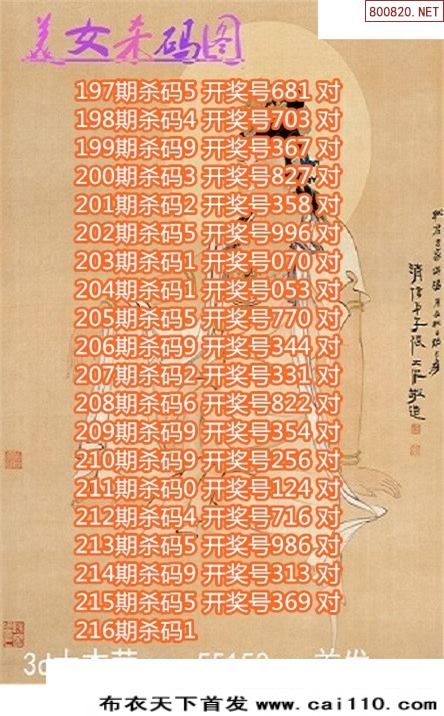 800820.NET
美女杀码图
197期杀码5 开奖号681 对
198期杀码4 开奖号703 对
199期杀码9 开奖号367 对
200期杀码3 开奖号827 对
201期杀码2 开奖号358 对
202期杀码5 开奖号996 对
203期杀码1 开奖号070 对
204期杀码1 开奖号053 对
205期杀码5 开奖号770 对
206期杀码9 开奖号344 对
207期杀码2 开奖号331 对
208期杀码6 开奖号822 对
209期杀码9 开奖号354 对
210期杀码9 开奖号256 对
211期杀码0 开奖号124 对
212期杀码4 开奖号716 对
213期杀码5 开奖号986 对
214期杀码9 开奖号313 对
215期杀码5 开奖号369 对
216期杀码1
布衣天下首发 www.cai110.com